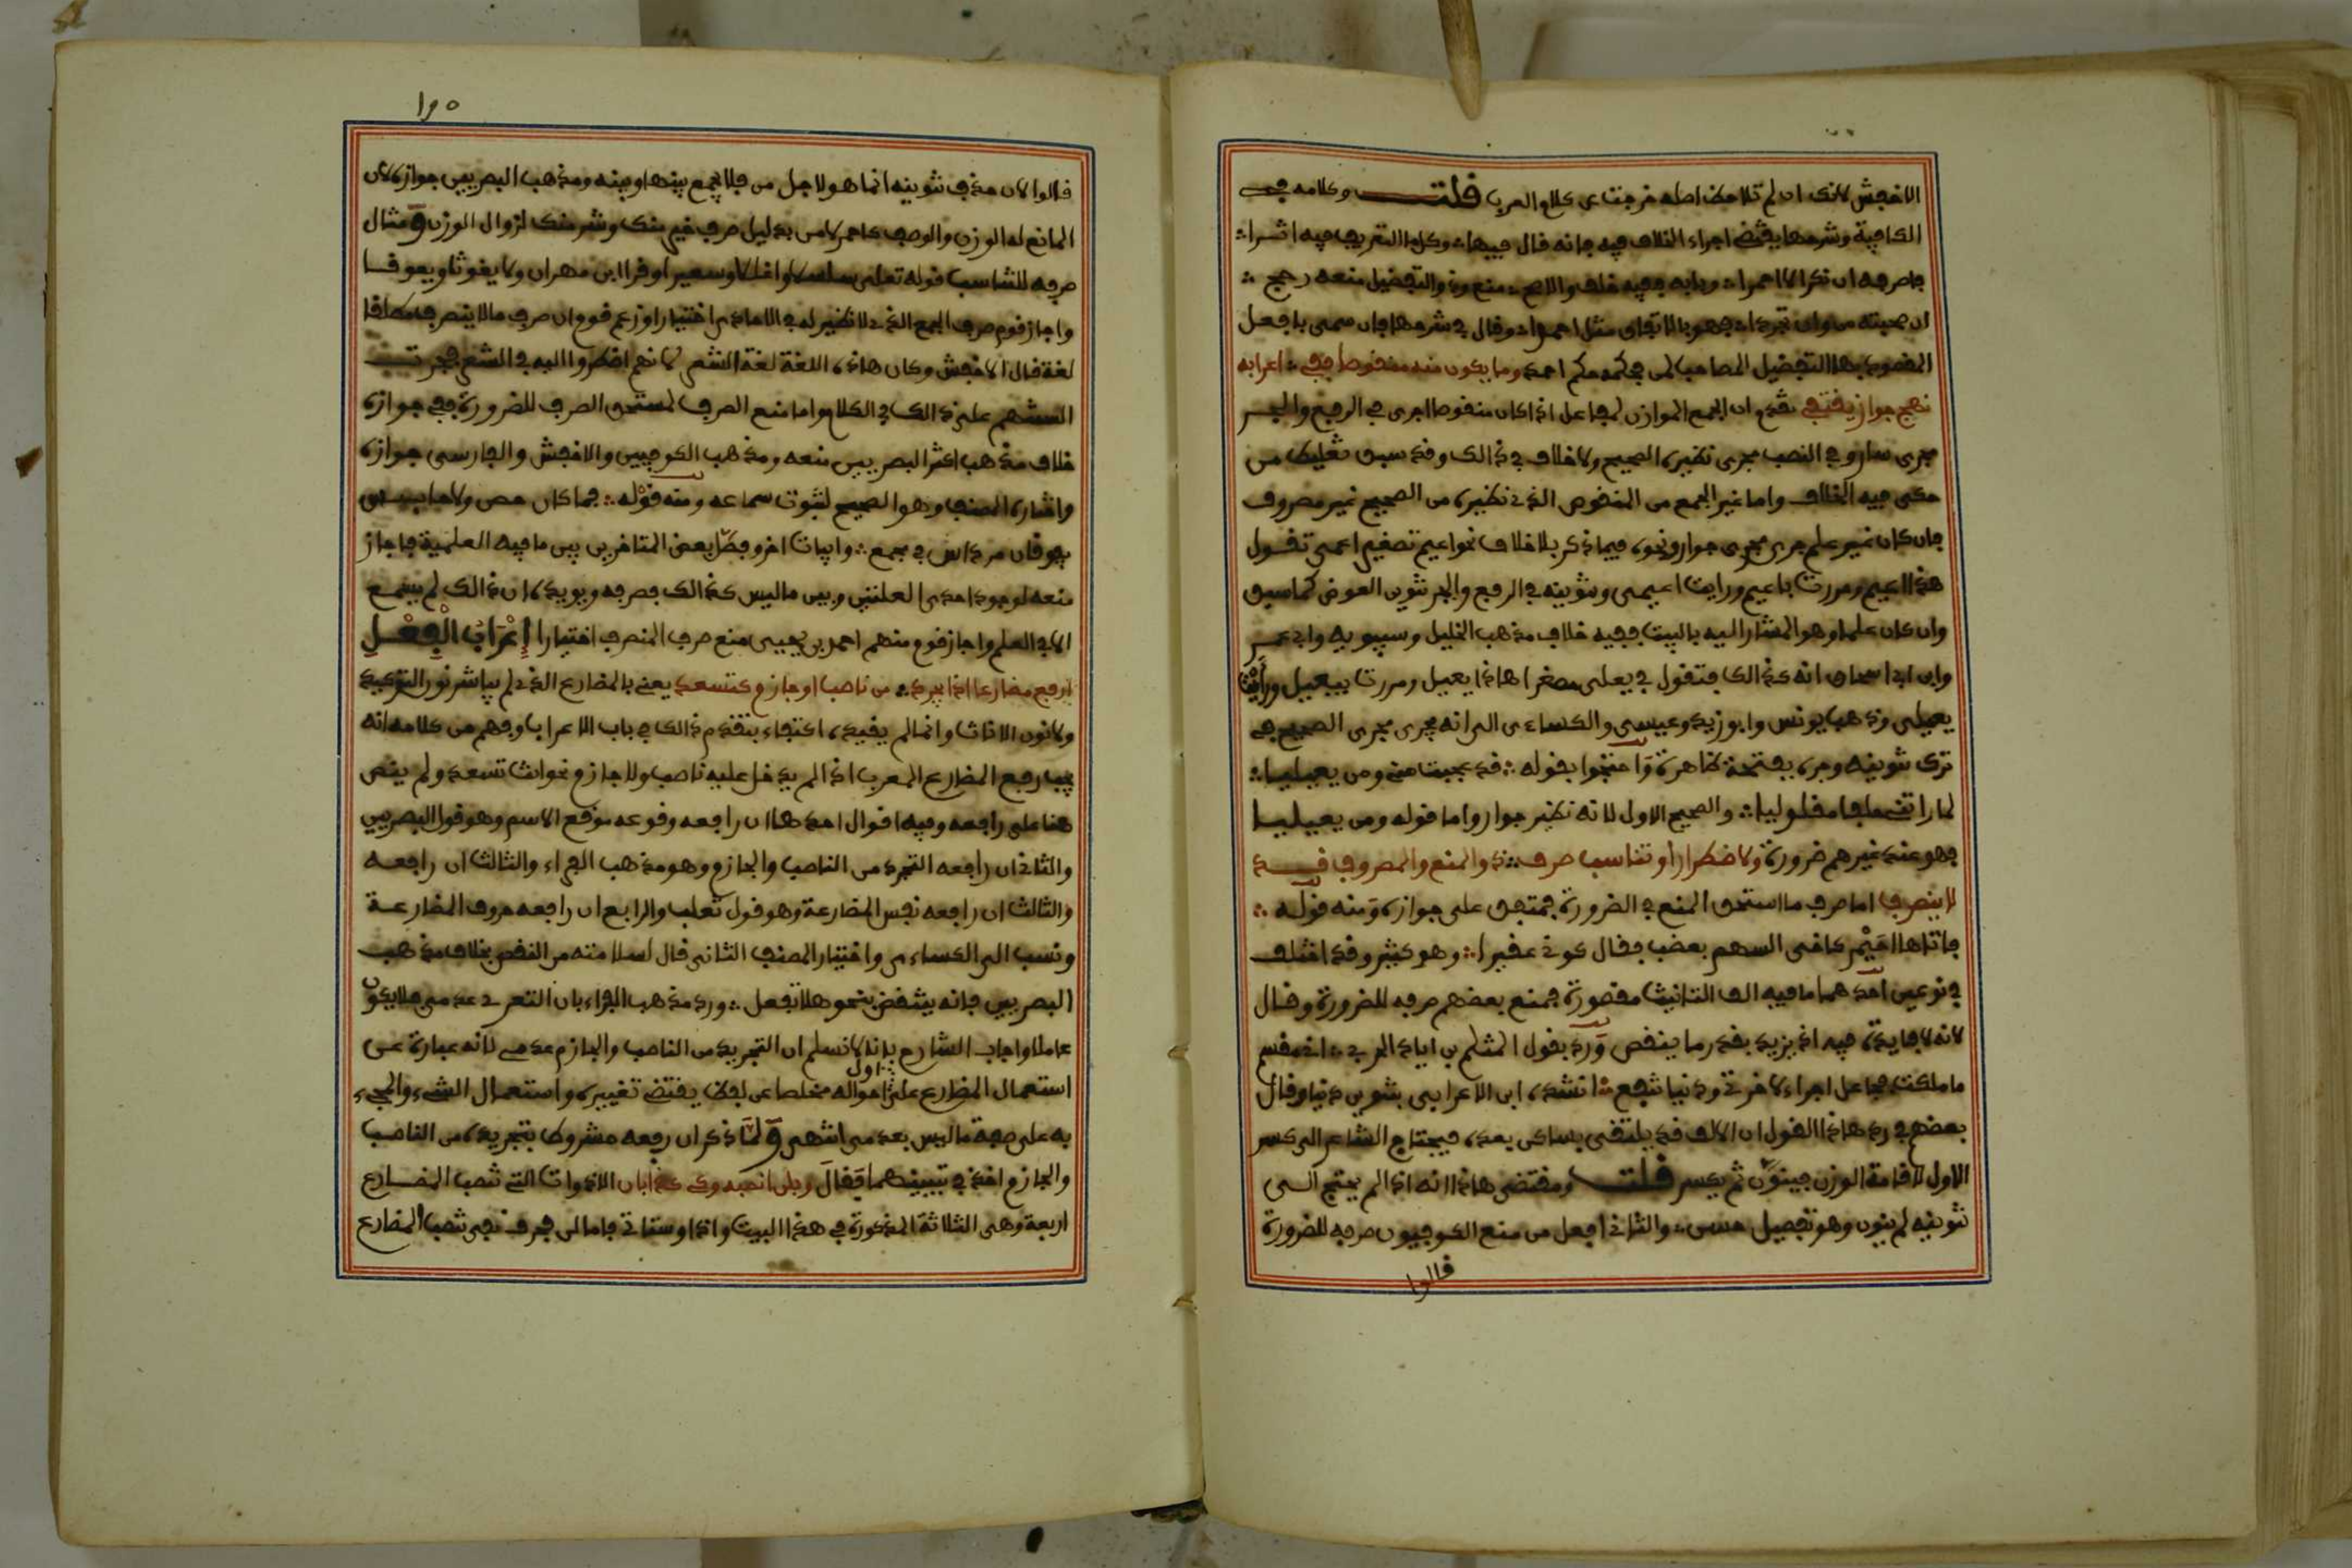 الاخفش لانك ان لم تلاحظ اصله خرجت عن كلام العرب قلت وكلامه في
الكافية وشرحها يقتضي اجراء الخلاف فيه فانه قال فيها وكل ذا التعريف فيه اثرا
فاصرفه ان نكرا لا احمرا وبابه ففيه خلف والاصح منع وذو التفضيل منعه رجح
ان صحبته من وان تجردا فهو بالاتفاق مثل احمرا وقال في شرحها فان سمي بافعل
المقصود بها التفضيل المصاحب لمن فحكمه حكم احمد وما يكون منه منقوصا ففي اعرابه
نهج جوار يقتفي تقدم ان الجمع الموازن لمفاعل اذا كان منقوصا اجري في الرفع والجر
مجرى سار وفي النصب مجرى نظيره الصحيح ولا خلاف في ذالك وقد سبق تغليط من
حكى فيه الخلاف واما غير الجمع من المنقوص الذي نظيره من الصحيح غير مصروف
فان كان غير علم جرى مجرى جوار ونحوه فيما ذكر بلا خلاف نحو اعيم تصغير اعمى تقول
هذا اعيم ومررت باعيم ورايت اعيمى وتنوينه في الرفع والجر تنوين العوض كما سبق
وان كان علما وهو المشار اليه بالبيت ففيه خلاف مذهب الخليل وسيبويه وابي عمر
وابن ابي اسحاق انه كذالك فتقول في يعلى مصغرا هاذا يعيل ومررت بيعيل ورأيت
يعيلى وذهب يونس وابو زيد وعيسى والكساءى الى انه يجرى مجرى الصحيح في
ترك تنوينه وجره بفتحة ظاهرة واحتجوا بقوله قد عجبت مني ومن يعيليا
لما راتني خلقا مقلوليا والصحيح الاول لانه نظير جوار واما قوله ومن يعيليا
فهو عند غيرهم ضرورة ولاضطرار او تناسب صرف ذو المنع والمصروف قد
لا ينصرف اما صرف ما استحق المنع في الضرورة فمتفق على جوازه ومنه قوله
فاتاها احيمر كاخى السهم بعضب فقال كوني عقيرا وهو كثير وقد اختلف
في نوعين احدهما ما فيه الف التانيث مقصورة فمنع بعضهم صرفه للضرورة وقال
لانه لا فايدة فيه اذ يزيد بقدر ما ينقص ورد بقول المثلم بن اياد المري اني مقسم
ما ملكت فجاعل اجراء لاخرتي ودنيا تنفع انشده ابن الاعرابي بتنوين دنيا وقال
بعضهم في رد هاذا القول ان الالف قد يلتقي بساكن بعده فيحتاج الشاعر الى كسر
الاول لاقامة الوزن فينون ثم يكسر قلت ومقتضى هاذا انه اذا لم يحتج الى
تنوينه لم ينون وهو تفصيل حسن والثاني افعل من منع الكوفيون صرفه للضرورة
قالوا
١٩٥
قالوا لان حذف تنوينه انما هو لاجل من فلا يجمع بينها وبينه ومذهب البصريين جوازه لان
المانع له الوزن والوصف كاحمر لا من بدليل صرف خير منك وشر منك لزوال الوزن ومثال
صرفه للتناسب قوله تعلى سلاسلا واغلالا وسعيرا وقرا ابن مهران ولا يغوثا ويعوقا
واجاز قوم صرف الجمع الذي لا نظير له في الاحاد اختيارا وزعم قوم ان صرف ما لا ينصرف مطلقا
لغة قال الاخفش وكان هاذه اللغة لغة الشعر لانهم اضطروا اليه في الشعر فجرت
السنتهم على ذالك في الكلام واما منع الصرف لمستحق الصرف للضرورة ففي جوازه
خلاف مذهب اكثر البصريين منعه ومذهب الكوفيين والاخفش والفارسي جوازه
واختاره المصنف وهو الصحيح لثبوت سماعه ومنه قوله فما كان حصن ولا حابس
يفوقان مرداس في مجمع وابيات اخر وفصّل بعض المتاخرين بين ما فيه العلمية فاجاز
منعه لوجود احدى العلتين وبين ما ليس كذالك فصرفه ويويده ان ذالك لم يسمع
الا في العلم واجاز قوم منهم احمد بن يحيى منع صرف المنصرف اختيارا إِعْرَابُ الْفِعْلِ
ارفع مضارعا اذا يجرد من ناصب او جازم كتسعد يعني بالمضارع الذي لم يباشر نور التوكيد
ولا نون الاناث وانما لم يقيده اكتفاء بتقدم ذالك في باب الاعراب وفهم من كلامه انه
يجب رفع المضارع المعرب اذا لم يدخل عليه ناصب ولا جازم نحو انت تسعد ولم ينص
هنا على رافعه وفيه اقوال احدها ان رافعه وقوعه موقع الاسم وهو قول البصريين
والثاني ان رافعه التجرد من الناصب والجازم وهو مذهب الفراء والثالث ان رافعه
والثالث ان رافعه نفس المضارعة وهو قول ثعلب والرابع ان رافعه حروف المضارعة
ونسب الى الكساءى واختيار المصنف الثاني قال لسلامته من النقض بخلاف مذهب
البصريين فانه ينتقض بنحو هلا تفعل ورد مذهب الفراء بان التعري عدمي فلا يكون
عاملا واجاب الشارح بانا لا نسلم ان التجريد من الناصب والجازم عدمي لانه عبارة عن
استعمال المضارع على اول احواله مخلصا عن لفظ يقتضي تغييره واستعمال الشيء والمجيء
به على صفة ما ليس بعدمي انتهى ولما ذكر ان رفعه مشروط بتجريده من الناصب
والجازم اخذ في تبيينهما فقال وبلن انصبه وكي كذا بان الادوات التي تنصب المضارع
اربعة وهي الثلاثة المذكورة في هذا البيت واذا وستاتي فاما لن فحرف نفي تنصب المضارع